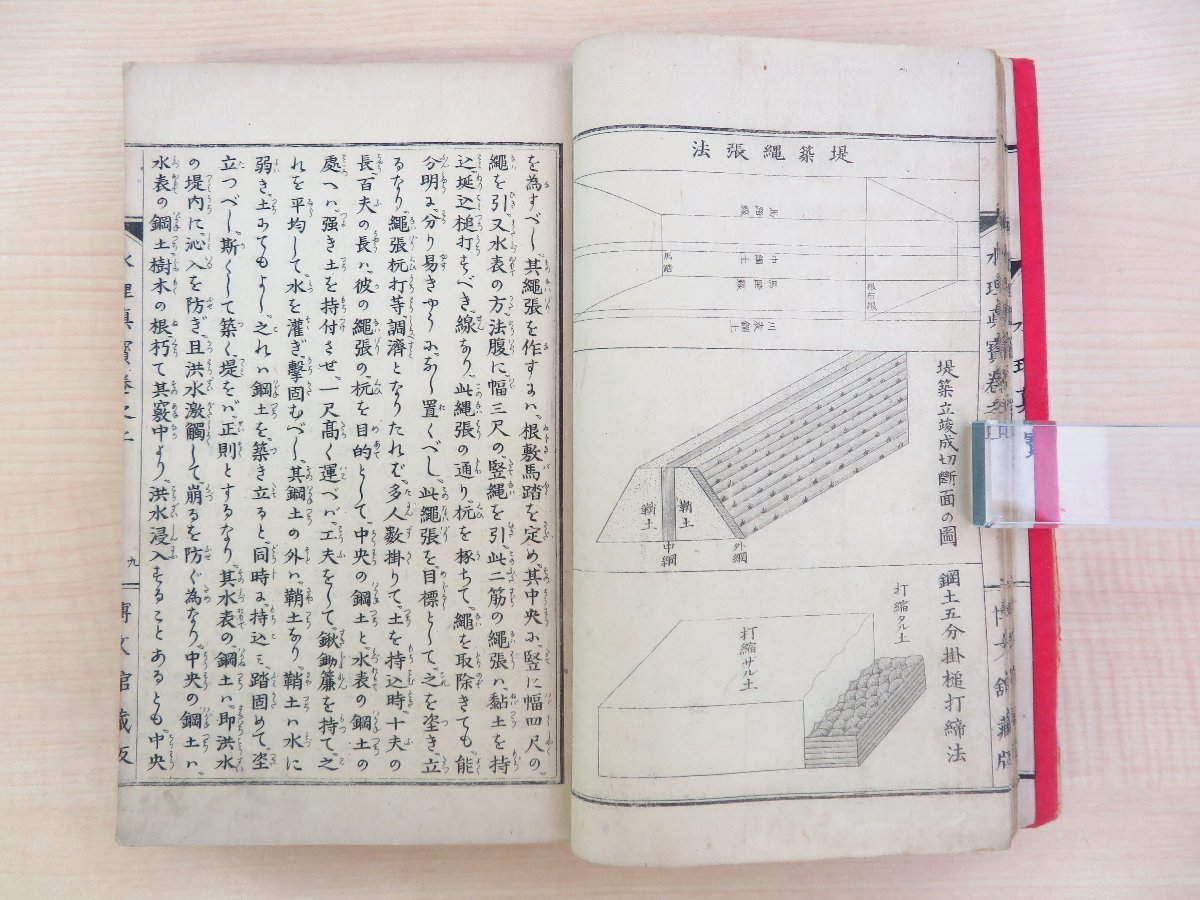 堤築繩張法
馬踏線
中鋼土
馬踏線
川表鋼土
馬踏
堤築立竣成切斷面の圖
鞘土
鞘土
中鋼
外鋼
鋼土五分掛槌打締法
打縮タル土
打縮サル土
水理眞寳卷之
博文舘藏版
を為すべし、其繩張を作すには、根敷馬踏を定め、其中央に竪に幅四尺の
繩を引、又水表の方法腹に、幅三尺の竪繩を引、此二筋の繩張ハ黏土を持
込、埏込槌打すべき、線なり、此繩張の通り、杭を椓ちて、繩を取除きても、能
分明に、分り易きやうになし置くべし、此繩張を目標として、之を埊き、立
るなり、繩張杭打等調濟となりたれば、多人数掛りて、土を持込時、十夫の
長、百夫の長ハ、彼の繩張の、杭を目的として、中央の鋼土と、水表の鋼土の
處へハ、强き土を持付させ、一尺高く運べバ、工夫をして、鍬鋤簾を持て、之
れを平均して、水を灌ぎ、擊固むべし、其鋼土の外ハ、鞘土なり、鞘土ハ水に
弱き、土にてもよし、之れハ鋼土を、築き立ると、同時に持込ミ、踏固めて、埊
立つべし、斯くして築く、堤をバ、正則とするなり、其水表の、鋼土ハ、即洪水
の堤内に、沁入を防ぎ、且洪水激觸して、崩るを防ぐ為なり、中央の鋼土ハ、
水表の鋼土、樹木の根、朽て其竅中より、洪水浸入することあるとも、中央
水理眞寳卷之上
九
博文舘藏版